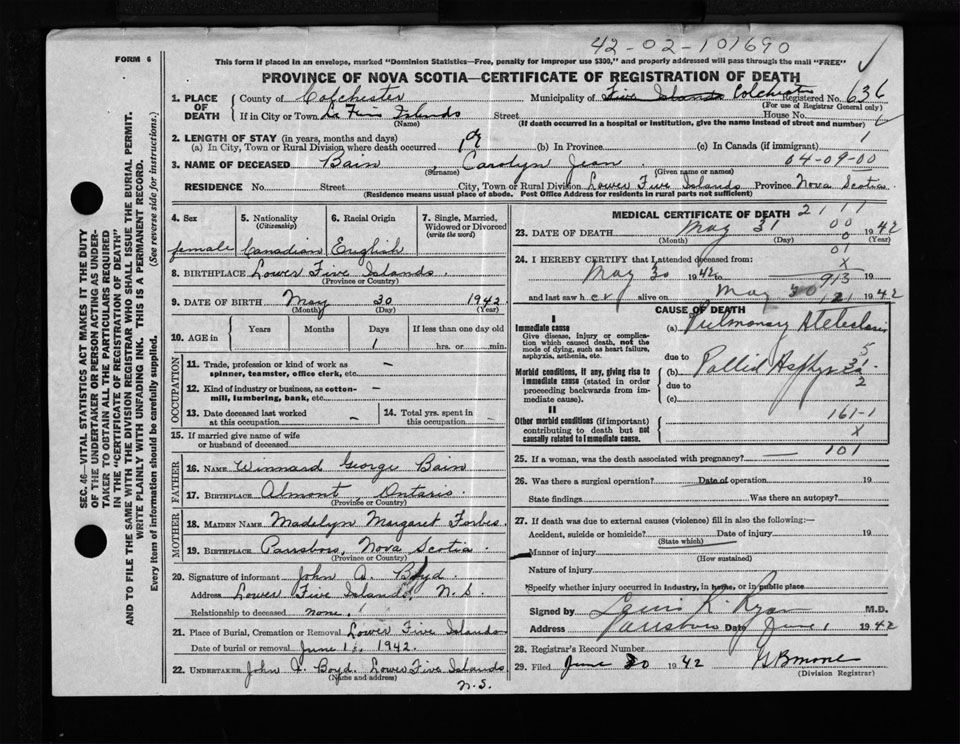 42-02-101690
FORM 6
This form if placed in an envelope, marked "Dominion Statistics—Free, penalty for improper use $300," and properly addressed will pass through the mail "FREE"
PROVINCE OF NOVA SCOTIA—CERTIFICATE OF REGISTRATION OF DEATH
SEC. 46—VITAL STATISTICS ACT MAKES IT THE DUTY
OF THE UNDERTAKER OR PERSON ACTING AS UNDER-
TAKER TO OBTAIN ALL THE PARTICULARS REQUIRED
IN THE "CERTIFICATE OF REGISTRATION OF DEATH"
AND TO FILE THE SAME WITH THE DIVISION REGISTRAR WHO SHALL ISSUE THE BURIAL PERMIT.
WRITE PLAINLY WITH UNFADING INK. THIS IS A PERMANENT RECORD.
Every item of information should be carefully supplied. (See reverse side for instructions.)
1. PLACE OF DEATH County of Colchester Municipality of Five Islands Colchester Registered No. 636
(For use of Registrar General only)
If in City or Town Five Islands Street House No.
(Name) (If death occurred in a hospital or institution, give the name instead of street and number)
2. LENGTH OF STAY (in years, months and days)
(a) In City, Town or Rural Division where death occurred (b) In Province (c) In Canada (if immigrant) 1
3. NAME OF DECEASED Bain, Carolyn Jean 04-09-00
(Surname) (Given name or names)
RESIDENCE No. Street City, Town or Rural Division Lower Five Islands Province Nova Scotia
(Residence means usual place of abode. Post Office Address for residents in rural parts not sufficient)
4. Sex 5. Nationality (Citizenship) 6. Racial Origin 7. Single, Married, Widowed or Divorced (write the word)
female Canadian English
8. BIRTHPLACE Lower Five Islands.
(Province or Country)
9. DATE OF BIRTH May 30 1942
(Month) (Day) (Year)
10. AGE in Years Months Days If less than one day old
1 hrs. or min.
OCCUPATION
11. Trade, profession or kind of work as spinner, teamster, office clerk, etc. —
12. Kind of industry or business, as cotton-mill, lumbering, bank, etc. —
13. Date deceased last worked at this occupation — 14. Total yrs. spent in this occupation —
15. If married give name of wife or husband of deceased
FATHER
16. NAME Winnard George Bain
17. BIRTHPLACE Almont, Ontario
(Province or Country)
MOTHER
18. MAIDEN NAME Madelyn Margaret Forbes
19. BIRTHPLACE Parrsboro, Nova Scotia.
(Province or Country)
20. Signature of informant John A. Boyd.
Address Lower Five Islands, N.S.
Relationship to deceased none.
21. Place of Burial, Cremation or Removal Lower Five Islands
Date of burial or removal June 1, 1942.
22. UNDERTAKER John A. Boyd. Lower Five Islands
(Name and address) N.S.
MEDICAL CERTIFICATE OF DEATH 2111
23. DATE OF DEATH May 31 1942
(Month) (Day) (Year)
24. I HEREBY CERTIFY that I attended deceased from:
May 30 1942 to 19
and last saw her alive on May 30 1942
CAUSE OF DEATH
I
Immediate cause
Give disease, injury or complication which caused death, not the mode of dying, such as heart failure, asphyxia, asthenia, etc.
(a) Pulmonary Atelectasis
due to
Morbid conditions, if any, giving rise to immediate cause (stated in order proceeding backwards from immediate cause).
(b) Pallid Asphyxia
due to
(c)
II
Other morbid conditions (if important) contributing to death but not causally related to immediate cause.
161-1
X
101
25. If a woman, was the death associated with pregnancy? —
26. Was there a surgical operation? Date of operation 19
State findings Was there an autopsy?
27. If death was due to external causes (violence) fill in also the following:—
Accident, suicide or homicide? Date of injury 19
(State which)
Manner of injury
(How sustained)
Nature of injury
Specify whether injury occurred in industry, in home, or in public place
Signed by Louis R. Ryan M.D.
Address Parrsboro Date June 1 1942
28. Registrar's Record Number
29. Filed June 20 1942
(Division Registrar)